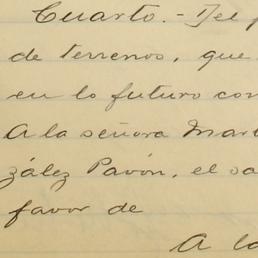 Cuarto.- Del
de terrenos, que
en lo futuro con
A la señora Mart
zález Pavón, el sa
favor de
A la